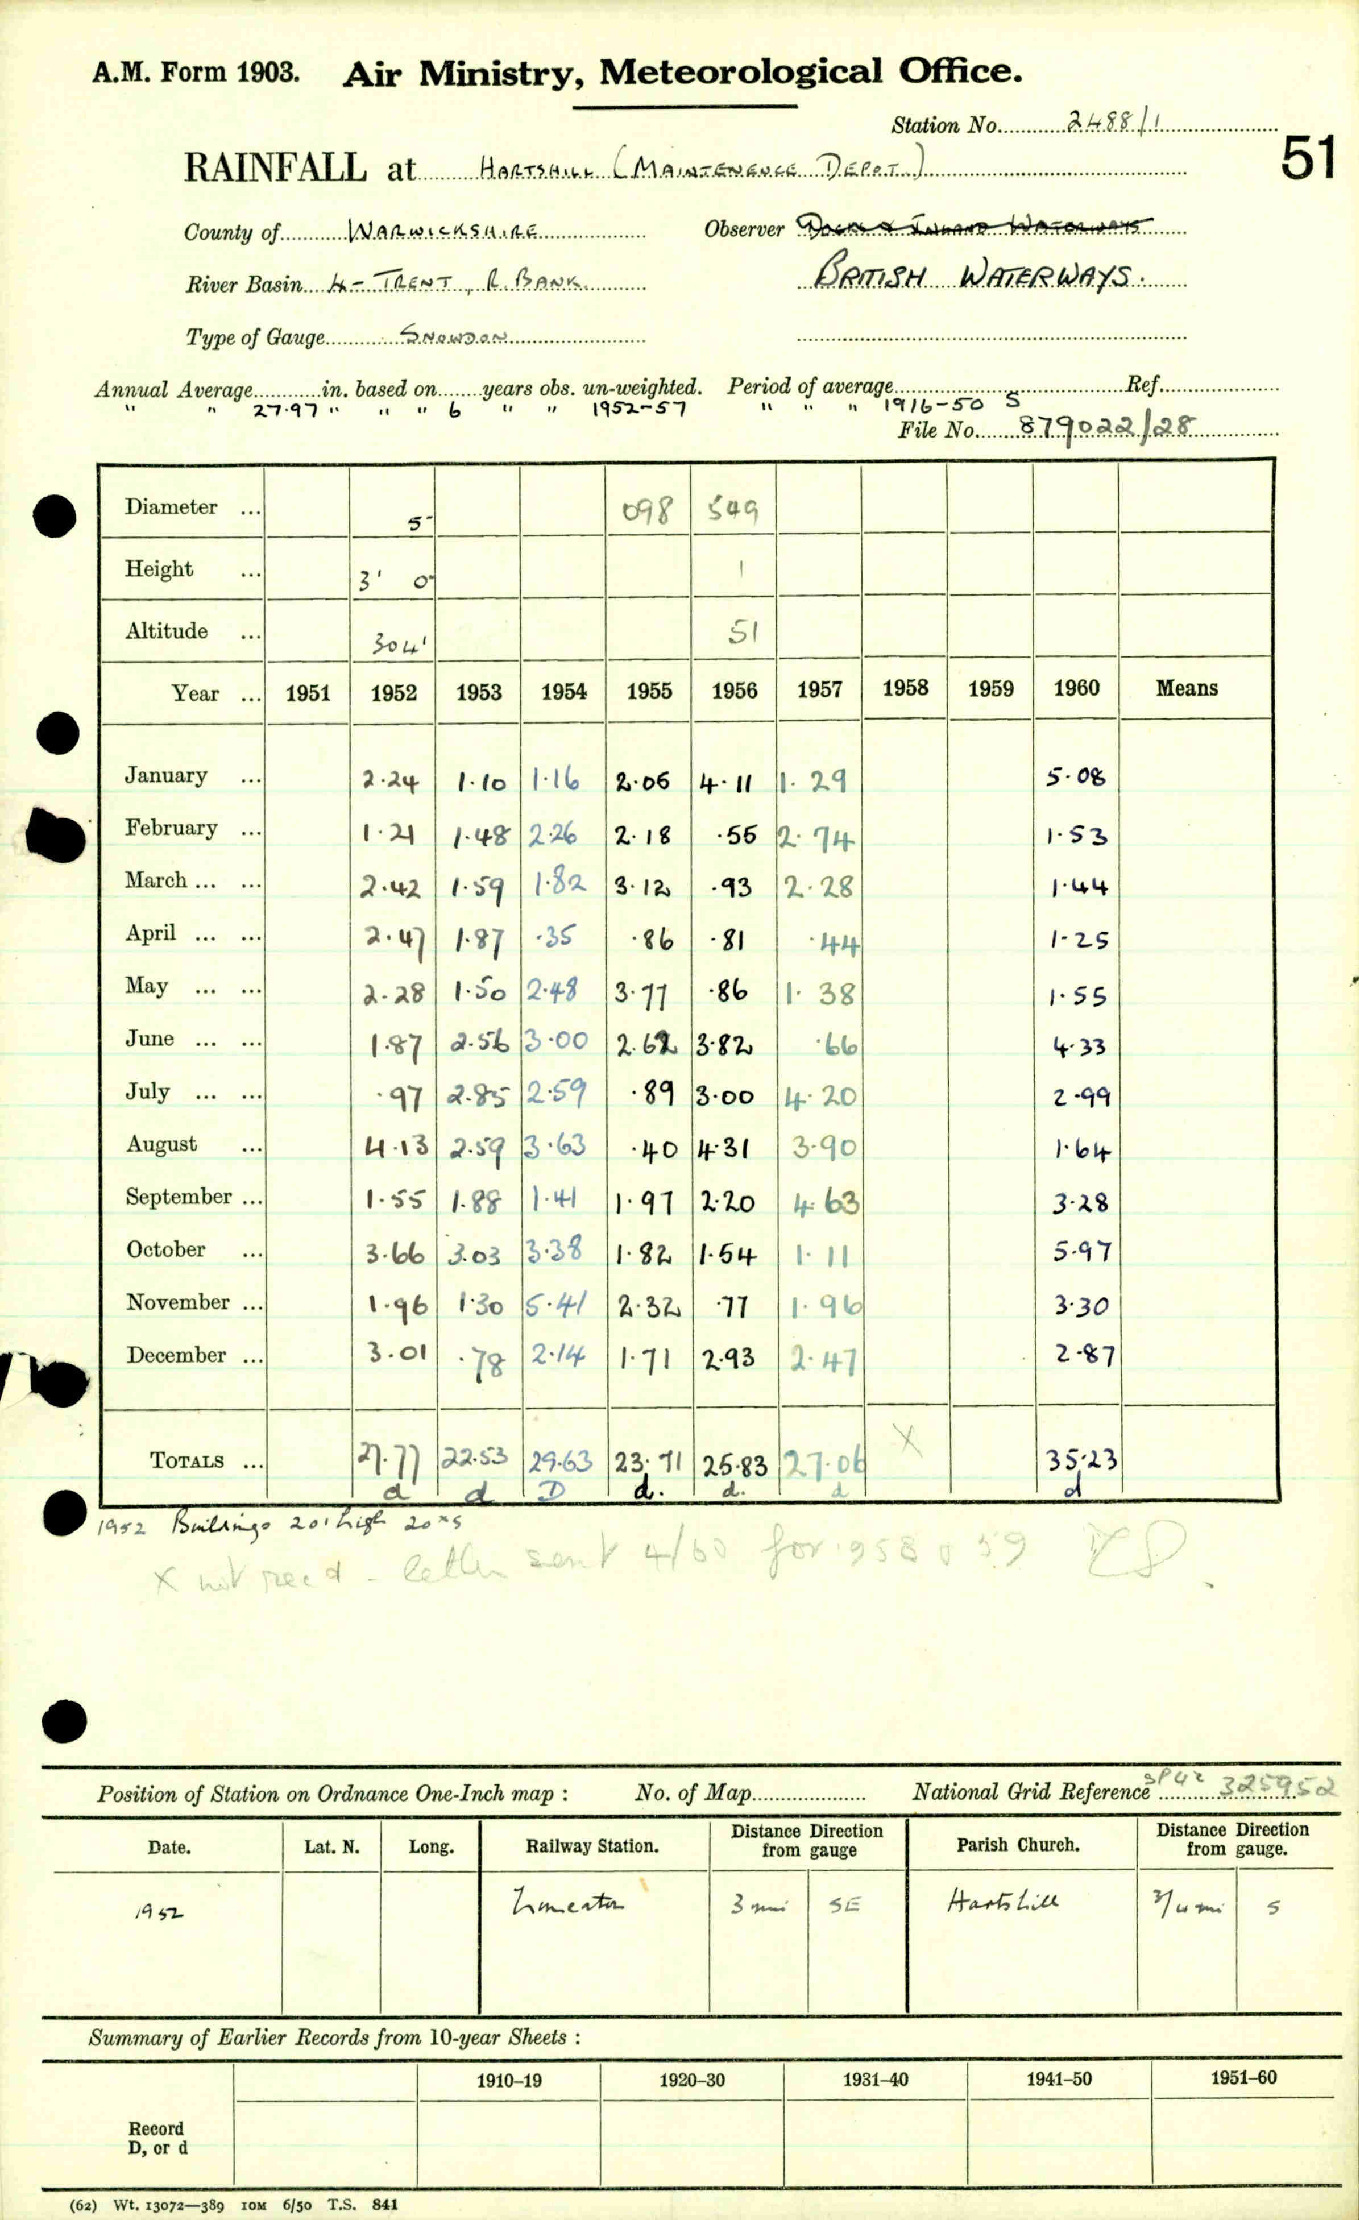 A.M. Form 1903. Air Ministry, Meteorological Office.
Station No. 2488/1
51
RAINFALL at HARTSHILL (MAINTENENCE DEPOT)
County of WARWICKSHIRE Observer DOCKS & INLAND WATERWAYS
River Basin 4 - TRENT, R. BANK BRITISH WATERWAYS.
Type of Gauge SNOWDON
Annual Average in. based on years obs. un-weighted. Period of average Ref.
" " 27.97 " " " 6 " " 1952-57 " " " 1916-50 S
File No. 879022/28
Diameter ... 5" 098 549
Height ... 3' 0" 1
Altitude ... 304' 51
Year ... 1951 1952 1953 1954 1955 1956 1957 1958 1959 1960 Means
January ... 2.24 1.10 1.16 2.05 4.11 1.29 5.08
February ... 1.21 1.48 2.26 2.18 .55 2.74 1.53
March ... ... 2.42 1.59 1.82 3.12 .93 2.28 1.44
April ... ... 2.47 1.87 .35 .86 .81 .44 1.25
May ... ... 2.28 1.50 2.48 3.77 .86 1.38 1.55
June ... ... 1.87 2.56 3.00 2.62 3.82 .66 4.33
July ... ... .97 2.85 2.59 .89 3.00 4.20 2.99
August ... 4.13 2.59 3.63 .40 4.31 3.90 1.64
September ... 1.55 1.88 1.41 1.97 2.20 4.63 3.28
October ... 3.66 3.03 3.38 1.82 1.54 1.11 5.97
November ... 1.96 1.30 5.41 2.32 .77 1.96 3.30
December ... 3.01 .78 2.14 1.71 2.93 2.47 2.87
TOTALS ... 27.77 22.53 29.63 23.71 25.83 27.06 X 35.23
d d D d. d. d d
1952 Buildings 20' high 20 S
X not recd - letter sent 4/60 for 1958 & 59
Position of Station on Ordnance One-Inch map : No. of Map National Grid Reference SP42 325952
Date. Lat. N. Long. Railway Station. Distance Direction from gauge Parish Church. Distance Direction from gauge.
1952 Nuneaton 3 mi SE Hartshill 3/4 mi S
Summary of Earlier Records from 10-year Sheets :
1910–19 1920–30 1931–40 1941–50 1951–60
Record
D, or d
(62) Wt. 13072—389 10M 6/50 T.S. 841